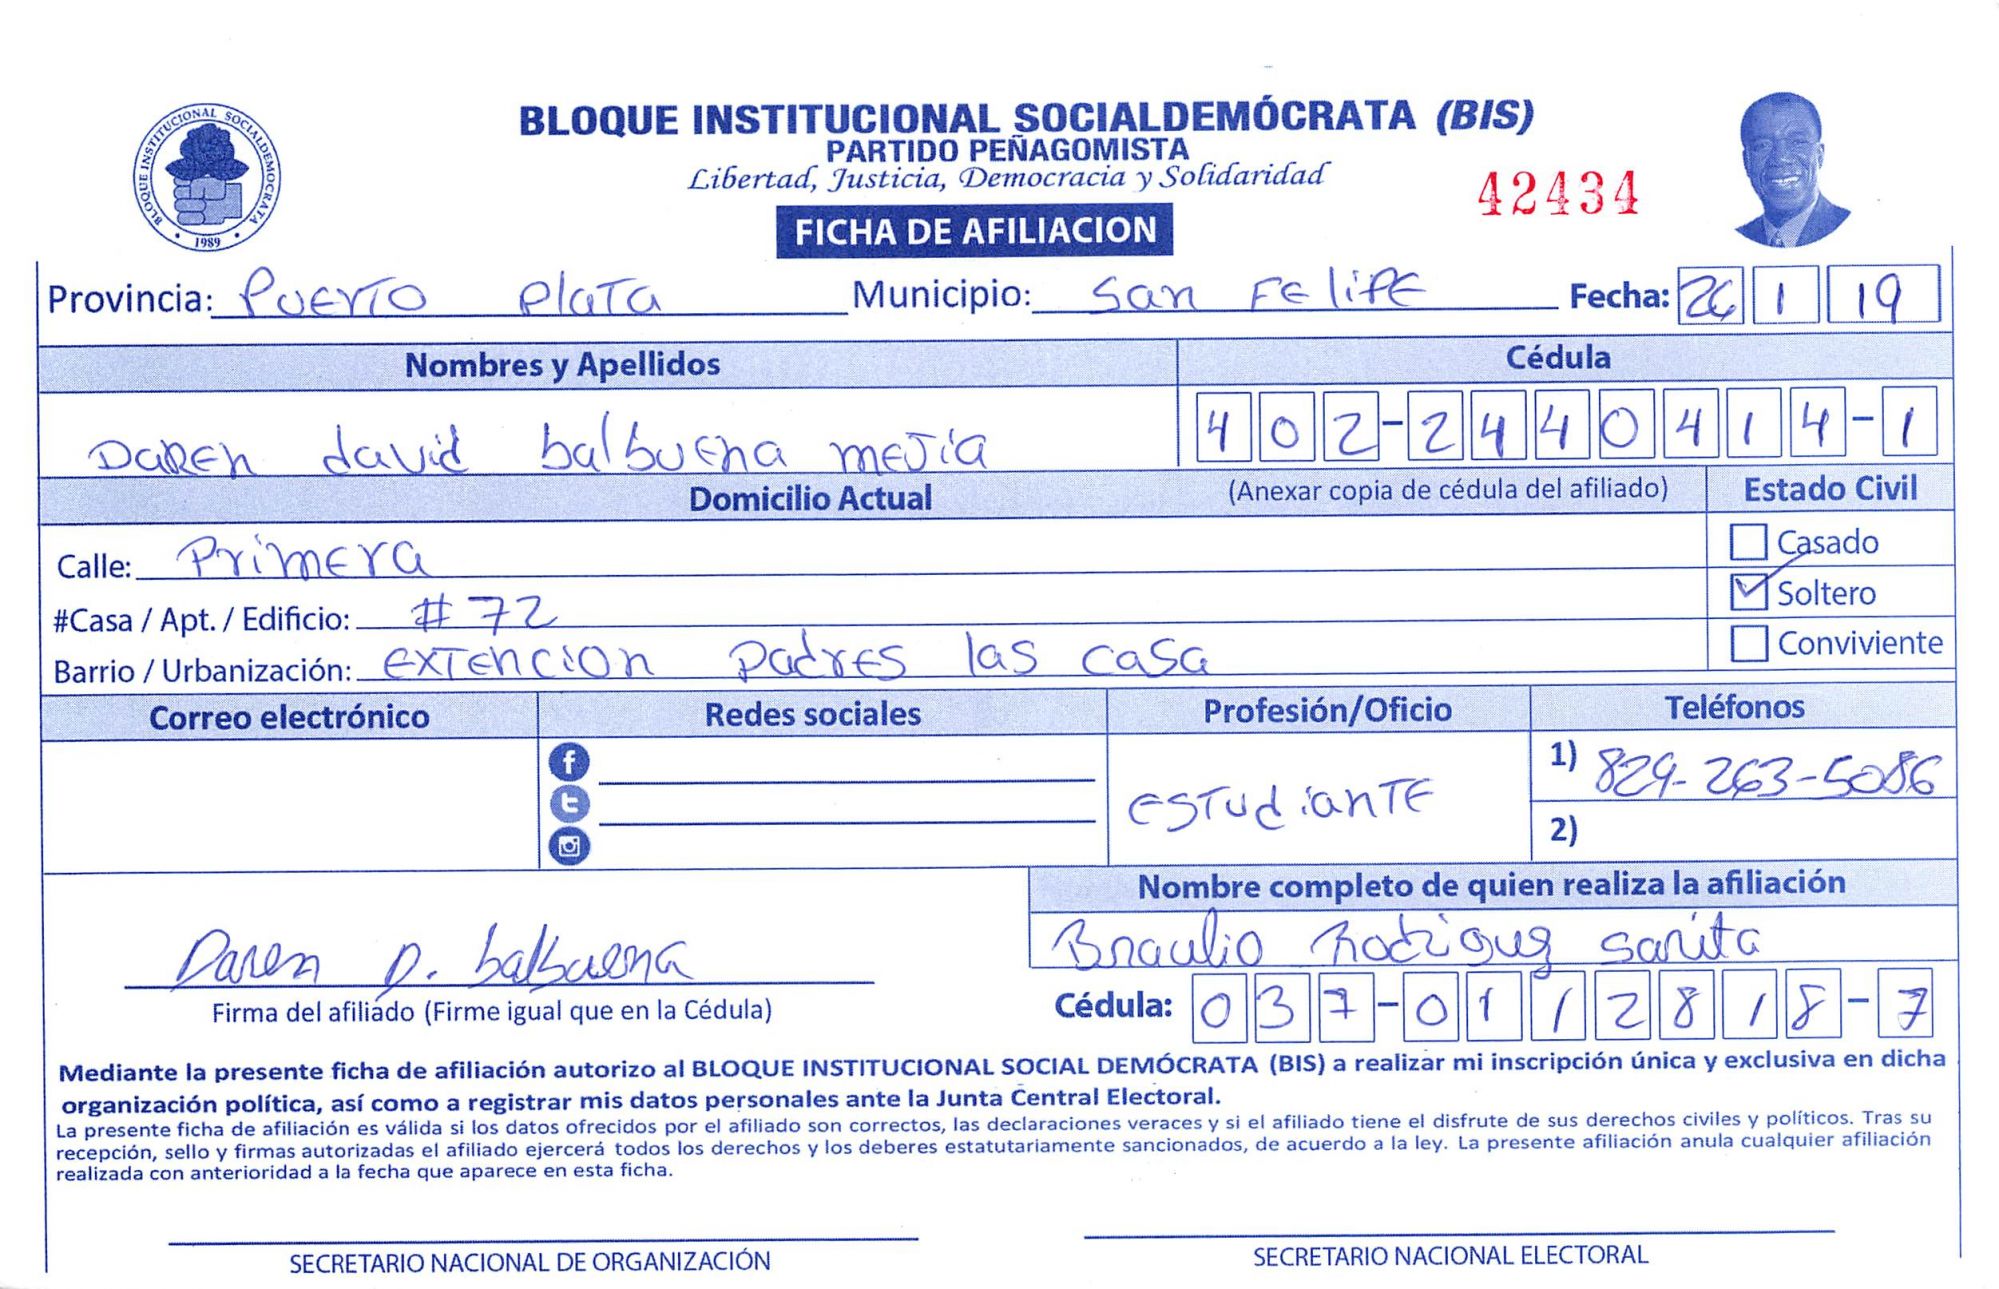 BLOQUE INSTITUCIONAL SOCIALDEMOCRATA
1989
BLOQUE INSTITUCIONAL SOCIALDEMÓCRATA (BIS)
PARTIDO PEÑAGOMISTA
Libertad, Justicia, Democracia y Solidaridad
42434
FICHA DE AFILIACION
Provincia: Puerto Plata Municipio: San Felipe Fecha: 26 1 19
Nombres y Apellidos Cédula
Daren david balbuena mejia 402-2440414-1
Domicilio Actual (Anexar copia de cédula del afiliado) Estado Civil
Calle: Primera
Casado
#Casa / Apt. / Edificio: #72
Soltero
Barrio / Urbanización: extencion padres las casa
Conviviente
Correo electrónico Redes sociales Profesión/Oficio Teléfonos
estudiante
1) 829-263-5086
2)
Nombre completo de quien realiza la afiliación
Braulio Rodriguez Sarita
Daren D. balbuena
Firma del afiliado (Firme igual que en la Cédula)
Cédula: 037-0112818-7
Mediante la presente ficha de afiliación autorizo al BLOQUE INSTITUCIONAL SOCIAL DEMÓCRATA (BIS) a realizar mi inscripción única y exclusiva en dicha
organización política, así como a registrar mis datos personales ante la Junta Central Electoral.
La presente ficha de afiliación es válida si los datos ofrecidos por el afiliado son correctos, las declaraciones veraces y si el afiliado tiene el disfrute de sus derechos civiles y políticos. Tras su
recepción, sello y firmas autorizadas el afiliado ejercerá todos los derechos y los deberes estatutariamente sancionados, de acuerdo a la ley. La presente afiliación anula cualquier afiliación
realizada con anterioridad a la fecha que aparece en esta ficha.
SECRETARIO NACIONAL DE ORGANIZACIÓN
SECRETARIO NACIONAL ELECTORAL